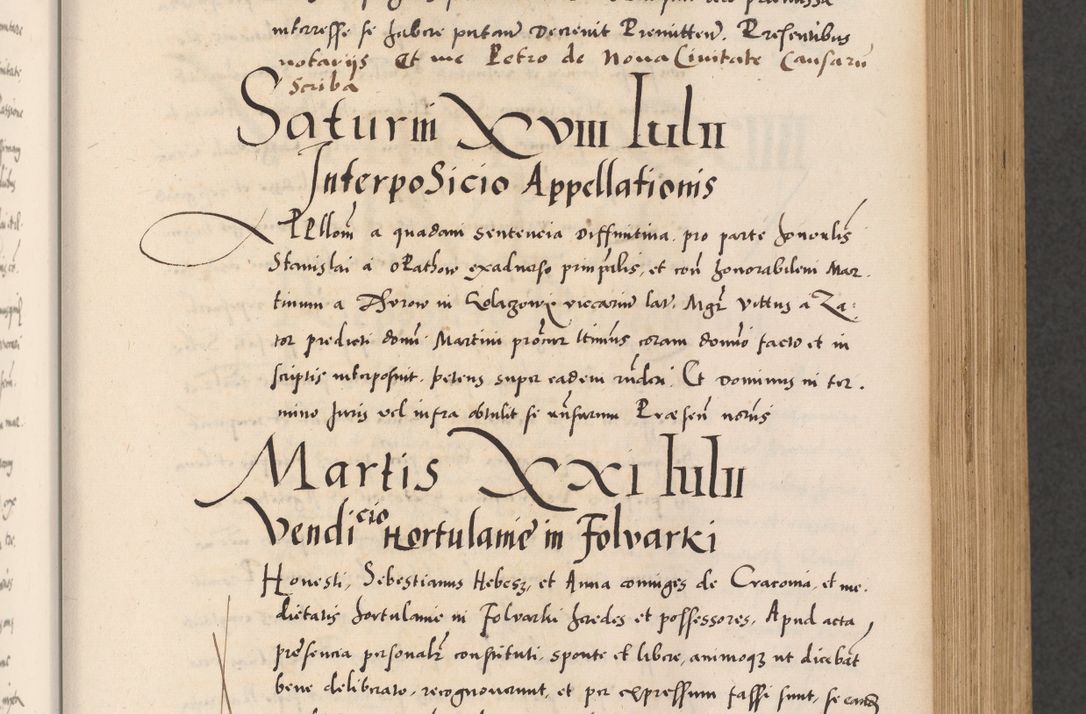 interesse se habere putan̄ decrevit Remitten̄. Presentibus
notariis Et me Petro de Nova Civitate Causarū
Scriba
Saturni XVIII Iulii
Interposicio Appellationis
APpellom̄ a quadam sentencia diffinitiva, pro parte honorabilis
Stanislai a oRathow exadverso principalis, et con̄ honorabilem Mar.
tinum a in viccariū lat. Mgr̄ Vittus a Za:
tor predicti domī Martini procur̄ coram domīo facto et in
scriptis interposuit. petens super eadem Et Dominus in ter.
mino Juris vel infra obtulit se Præsen̄ notariis
Martis XXI Iulii
Vendicio Hortulanie in Folvarki
Honesti, Sebestianus Hebesz, et Anna coniuges de Cracovia, et me.
dietatis hortulanie in Folvarki heredes et possessores, Apud acta
presencia personalr̄ constituti, sponte et libere, animoqȝ ut dicebāt
bene deliberato, recognoverunt, et per expressum fassi sunt, se